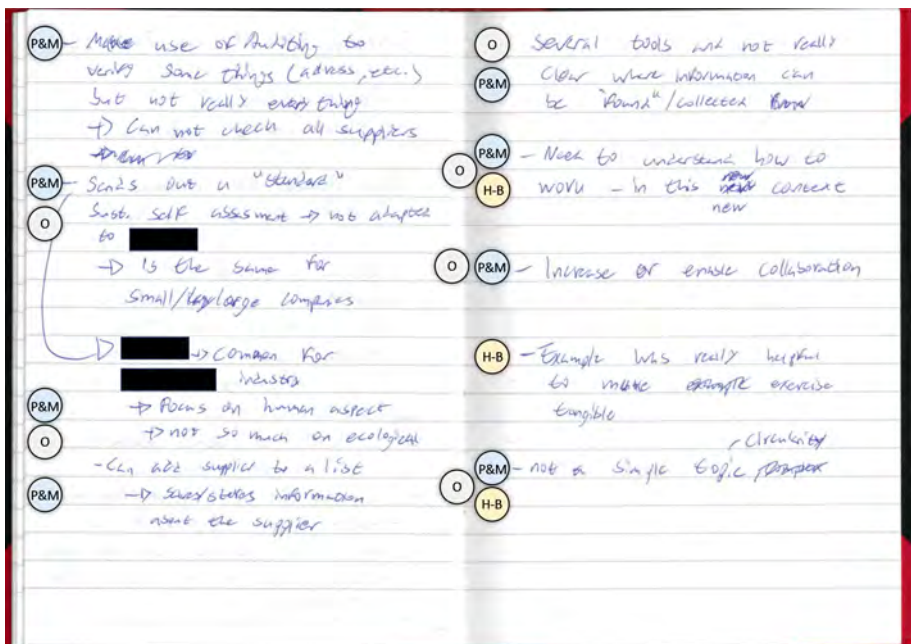 P&M - Make use of Auditing to
verify some things (adress, etc.)
but not really everything
→ Can not check all suppliers
P&M - Sends out a "standard"
O Sust. self assesment → not adapted
to
→ is the same for
small/large companies
→ Common for
industry
P&M → Focus on human aspect
O → not so much on ecological
- Can add supplier to a list
P&M → saves/stores information
about the supplier
O Several tools and not really
P&M Clear where information can
be "found"/collected
P&M - Need to understand how to
O H-B work - in this new context
O P&M - Increase or enable collaboration
H-B - Example was really helpful
to make exercise
tangible
, Circularity
O P&M - not a simple topic
H-B